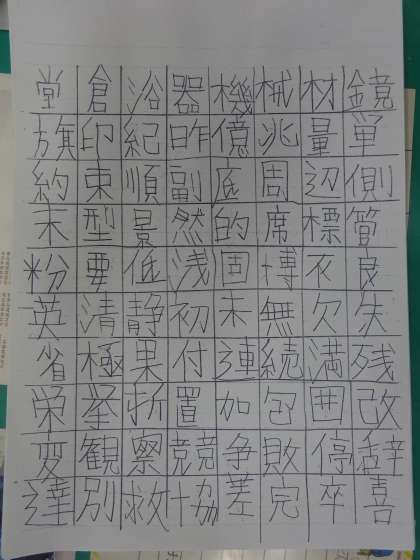 堂倉浴器機械材鏡
旗印紀昨億兆量単
約束順副底周辺側
末型景然的席標管
粉要低浅固博衣良
英清静初未無欠失
省極果付連続満残
栄挙折置加包囲改
変観察競争敗停辞
達別救協差完卒喜